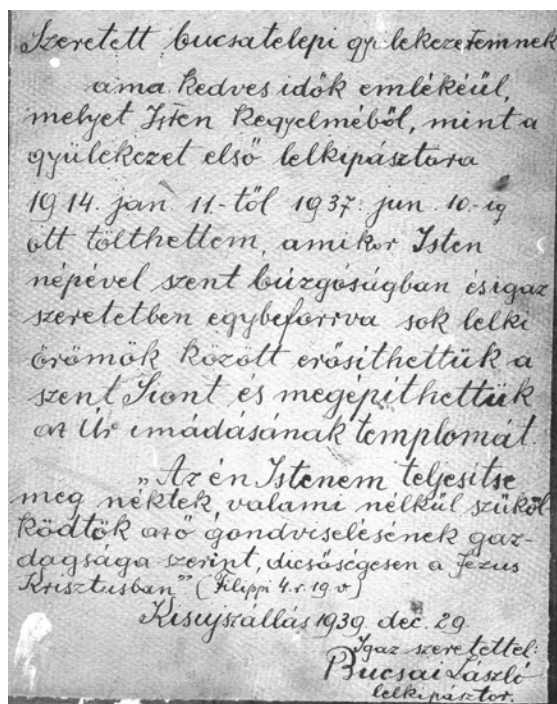 Szeretett bucsatelepi gyülekezetemnek
ama kedves idők emlékéül,
melyet Isten kegyelméből, mint a
gyülekezet első lelkipásztora
1914. jan. 11.-től 1937. jun. 10.-ig
ott tölthettem, amikor Isten
népével szent búzgóságban és igaz
szeretetben egybeforrva sok lelki
örömök között erősithettük a
szent Siont és megépithettük
az Úr imádásának templomát.
„Az én Istenem teljesitse
meg néktek, valami nélkül szüköl-
ködtök az ő gondviselésének gaz-
dagsága szerint, dicsőségesen a Jézus
Krisztusban" (Filippi 4. r. 19. v)
Kisujszállás 1939. dec. 29.
Igaz szeretettel:
Bucsai László
lelkipásztor.